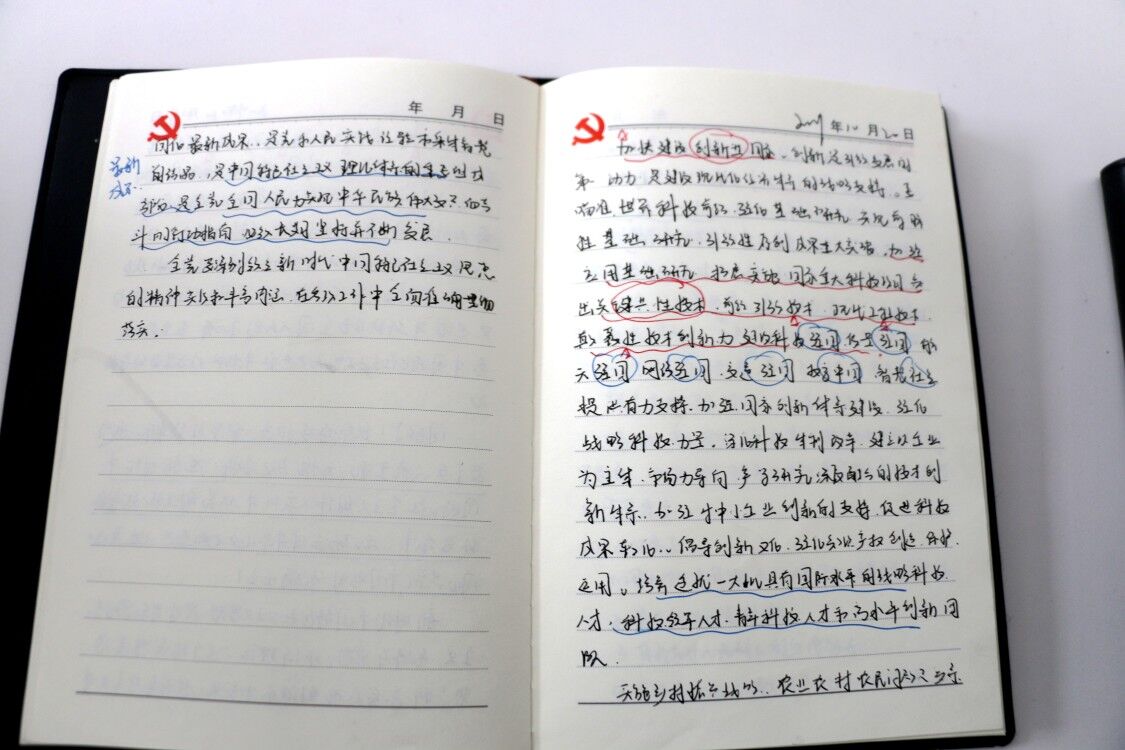 年 月 日
国化最新成果..是党和人民实践经验和集体智慧
最新
成果..
的结晶,是中国特色社会主义理论体系的重要组成
部分,是全党全国人民为实现中华民族伟大复兴而奋
斗的行动指南 必须长期坚持并不断发展.
全党要深刻领会新时代中国特色社会主义思想
的精神实质和丰富内涵.在各项工作中全面准确贯彻
落实.
年10月20日
加快建设创新型国家.创新是引领发展的
第一动力 是建设现代化经济体系的战略支撑..要
瞄准世界科技前沿.强化基础研究 实现前瞻
性基础研究.引领性原创成果重大突破.加强
应用基础研究 拓展实施国家重大科技项目 突
出关键共性技术.前沿引领技术.现代工程技术.
颠覆性技术创新 为建设科技强国 质量强国 航
天强国 网络强国.交通强国 数字中国.智慧社会
提供有力支撑.加强国家创新体系建设.强化
战略科技力量.深化科技体制改革.建立以企业
为主体.市场为导向.产学研深度融合的技术创
新体系..加强对中小企业创新的支持.促进科技
成果转化..倡导创新文化.强化知识产权创造.保护.
运用。培养造就一大批具有国际水平的战略科技
人才.科技领军人才.青年科技人才和高水平创新团
队.
实施乡村振兴战略..农业农村农民问题是